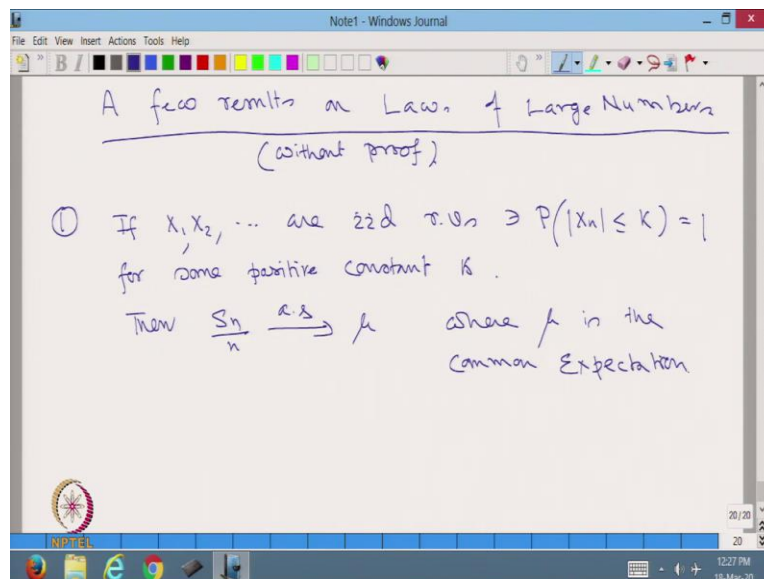 Note1 - Windows Journal
File Edit View Insert Actions Tools Help
B I
A few results on Laws of Large Numbers
(without proof)
① If X₁, X₂, ... are iid r.vs ∋ P(|Xn| ≤ K) = 1
for some positive constant K.
Then Sn/n a.s→ μ where μ is the
common Expectation
NPTEL
20/20
20
12:27 PM
18-Mar-20